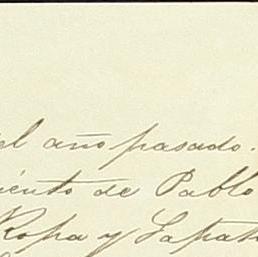 el año pasado.
iento de Pablo
Ropa y Zapat